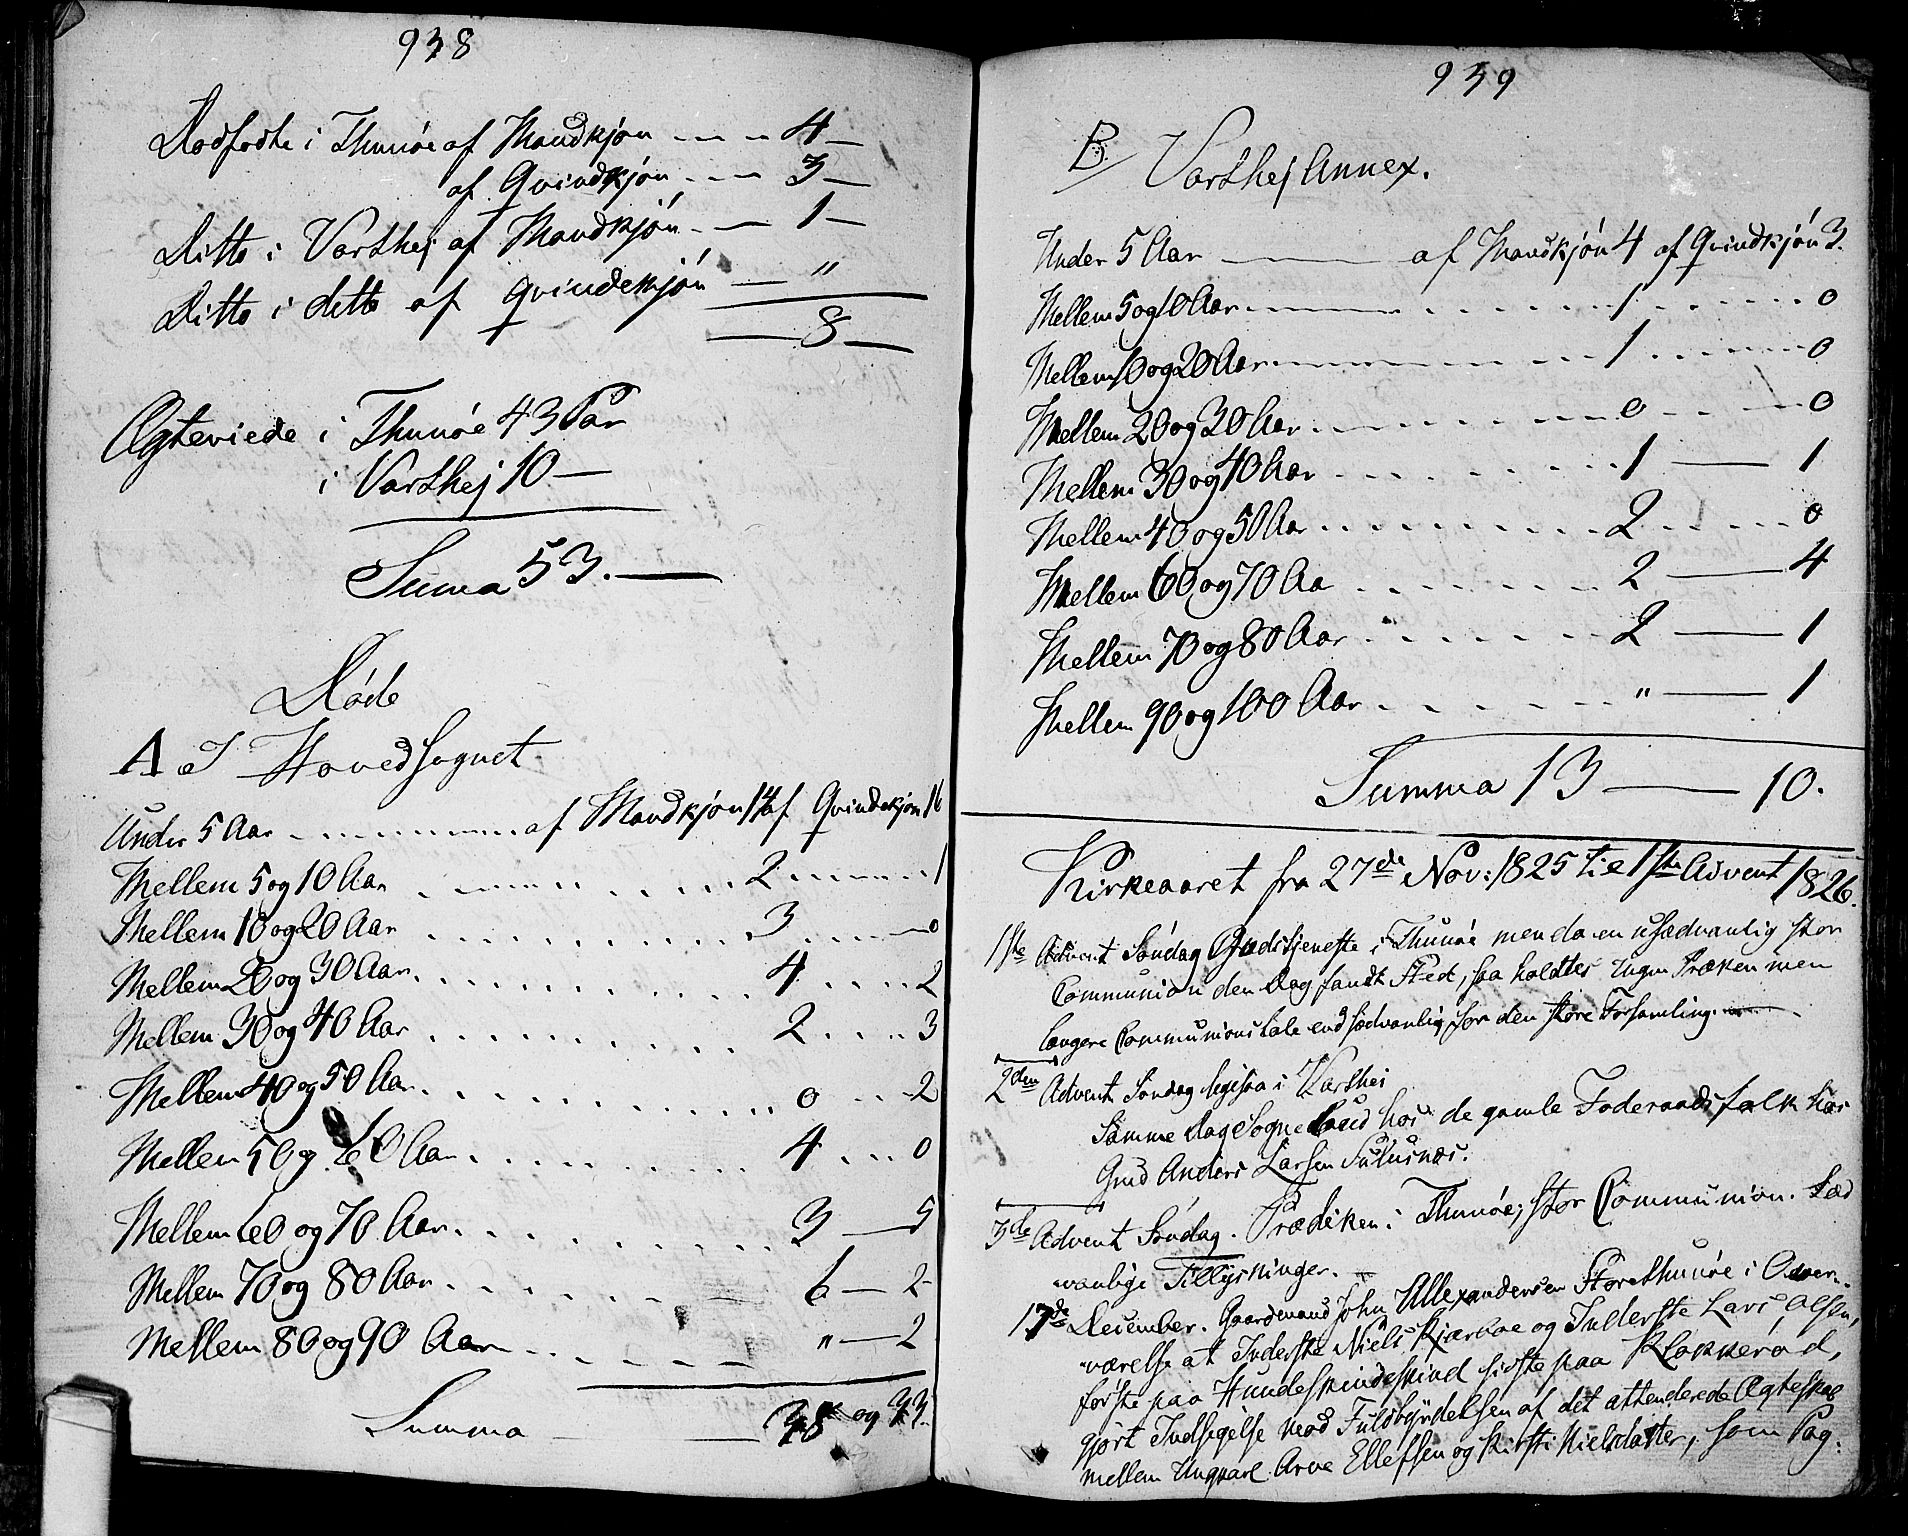 938
Dødfødte i Thunøe af Mandkjøn 4
af Qvindkjøn 3
Ditto i Varthej af Mandkjøn 1
Ditto i ditto af Qvindekjøn "
8
Ægteviede i Thunøe 43 Par
i Varthej 10
Suma 53.
Døde
A I Hovedsognet
Under 5 Aar af Mandkjøn 14 af Qvindekjøn 16
Mellem 5 og 10 Aar 2 1
Mellem 10 og 20 Aar 3 0
Mellem 20 og 30 Aar 4 2
Mellem 30 og 40 Aar 2 3
Mellem 40 og 50 Aar 0 2
Mellem 50 og 60 Aar 4 0
Mellem 60 og 70 Aar 3 5
Mellem 70 og 80 Aar 6 2
Mellem 80 og 90 Aar " 2
Summa 38 og 33.
939
B Varthej Annex.
Under 5 Aar af Mandkjøn 4 af Qvindkjøn 3.
Mellem 5 og 10 Aar 1 0
Mellem 10 og 20 Aar 1 0
Mellem 20 og 30 Aar 0 0
Mellem 30 og 40 Aar 1 1
Mellem 40 og 50 Aar 2 0
Mellem 60 og 70 Aa 2 4
Mellem 70 og 80 Aar 2 1
Mellem 90 og 100 Aar " 1
Summa 13 10.
Kirkeaaret fra 27de Nov: 1825 til 1ste Advent 1826.
1ste Advent Søndag Gudstjeneste i Thunøe men da en usædvanlig stor
Communion den Dag fandt Sted, saa holdtes ingen Præken men
længere Communionstale end sædvanlig for den store Forsamling.
2den Advent Søndag ligesaa i Varthej
Samme Dag Sognebud hos de gamle Foderaadsfolk hos
Gmd Anders Larsen
3de Advent Søndag. Prædiken i Thunøe, stor Communion. Sæd
vanlige Tillysninger.
17de December. Gaardmand John Allexandersen Storethunøe i Over-
værelse at Inderste Niels Kjærboe og Inderste Lars Olsen,
første paa Hundeskindeskind sidste paa Klokkerød,
gjort Indsigelse mod Fuldbyrdelsen af det attenderede Ægteskab
mellem Ungkarl Arve Ellefsen og Kirsti Nielsdatter, som Pag.